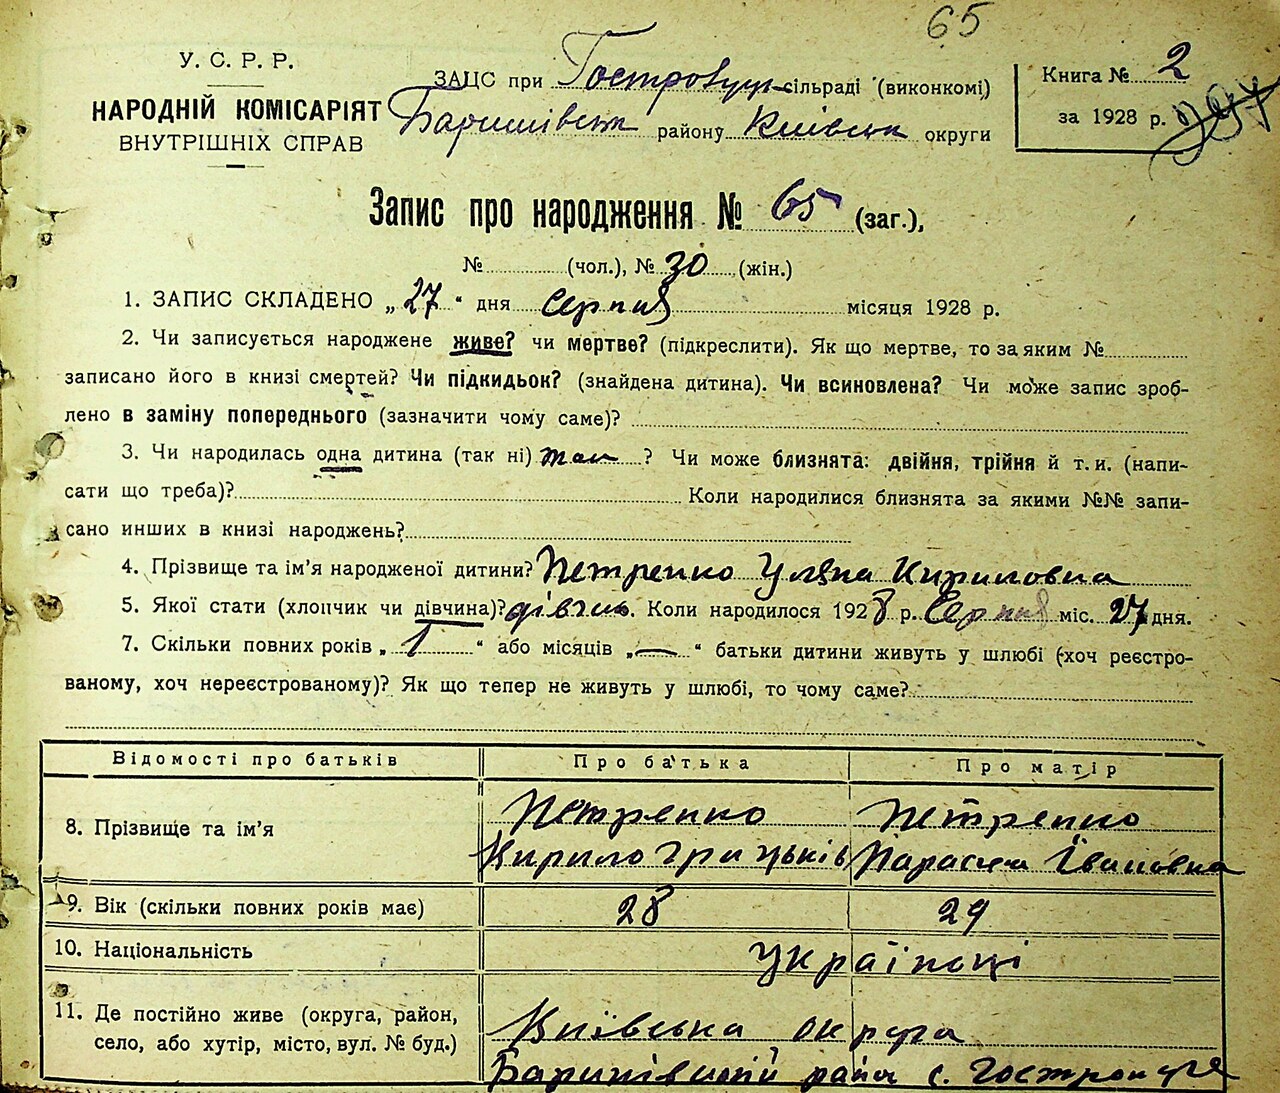 65
У. С. Р. Р.
НАРОДНІЙ КОМІСАРІЯТ
ВНУТРІШНІХ СПРАВ
ЗАЦС при Гостролуц. сільраді (виконкомі)
Баришівськ району Київськ округи
Книга № 2
за 1928 р.
Запис про народження № 65 (заг.),
№ (чол.), № 30 (жін.)
1. ЗАПИС СКЛАДЕНО „27“ дня Серпня місяця 1928 р.
2. Чи записується народжене живе? чи мертве? (підкреслити). Як що мертве, то за яким №
записано його в книзі смертей? Чи підкидьок? (знайдена дитина). Чи всиновлена? Чи може запис зроб-
лено в заміну попереднього (зазначити чому саме)?
3. Чи народилась одна дитина (так ні) так ? Чи може близнята: двійня, трійня й т. и. (напи-
сати що треба)? Коли народилися близнята за якими №№ запи-
сано инших в книзі народжень?
4. Прізвище та ім'я народженої дитини? Петренко Уляна Кириловна
5. Якої стати (хлопчик чи дівчина)? дівчин. Коли народилося 1928 р. Серпня міс. 27 дня.
7. Скільки повних років „ 1 “ або місяців „ — “ батьки дитини живуть у шлюбі (хоч реєстро-
ваному, хоч нереєстрованому)? Як що тепер не живуть у шлюбі, то чому саме?
Відомості про батьків Про батька Про матір
8. Прізвище та ім'я Петренко Кирило Грицьків Петренко Параска Івановна
9. Вік (скільки повних років має) 28 29
10. Національність Українці
11. Де постійно живе (округа, район, Київська округа
село, або хутір, місто, вул. № буд.) Баришівський район с. Гостролуччя